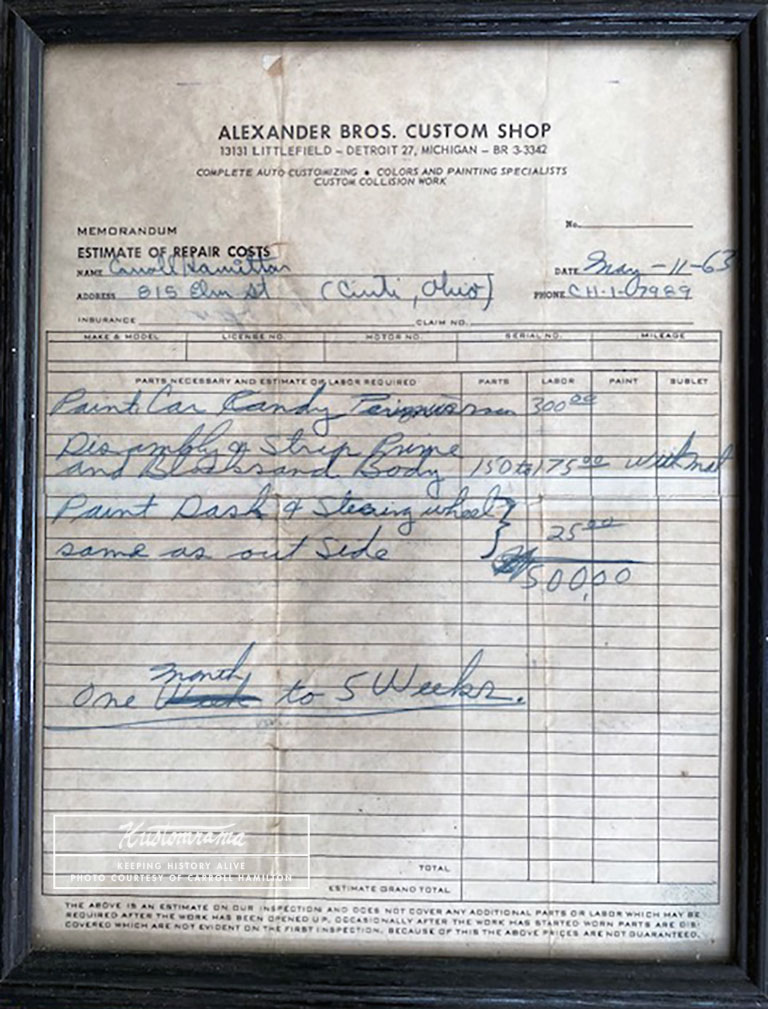 ALEXANDER BROS. CUSTOM SHOP
13131 LITTLEFIELD – DETROIT 27, MICHIGAN – BR 3-3342
COMPLETE AUTO CUSTOMIZING • COLORS AND PAINTING SPECIALISTS
CUSTOM COLLISION WORK
No.
MEMORANDUM
ESTIMATE OF REPAIR COSTS
NAME Carroll Hamilton DATE May-11-63
ADDRESS 815 Elm St (Cinti, Ohio) PHONE CH-1-7989
INSURANCE CLAIM NO.
MAKE & MODEL LICENSE NO. MOTOR NO. SERIAL NO. MILEAGE
PARTS NECESSARY AND ESTIMATE OF LABOR REQUIRED PARTS LABOR PAINT SUBLET
Paint Car Kandy 300 00
Disambly & Strip Prime
and Blocksand Body 150 to 175 00
Paint Dash & Stearing wheel
25 00
same as out Side
500,00
month
One to 5 Weeks.
Kustomrama
KEEPING HISTORY ALIVE
PHOTO COURTESY OF CARROLL HAMILTON
TOTAL
ESTIMATE GRAND TOTAL
THE ABOVE IS AN ESTIMATE ON OUR INSPECTION AND DOES NOT COVER ANY ADDITIONAL PARTS OR LABOR WHICH MAY BE
REQUIRED AFTER THE WORK HAS BEEN OPENED UP. OCCASIONALLY AFTER THE WORK HAS STARTED WORN PARTS ARE DIS-
COVERED WHICH ARE NOT EVIDENT ON THE FIRST INSPECTION. BECAUSE OF THIS THE ABOVE PRICES ARE NOT GUARANTEED.